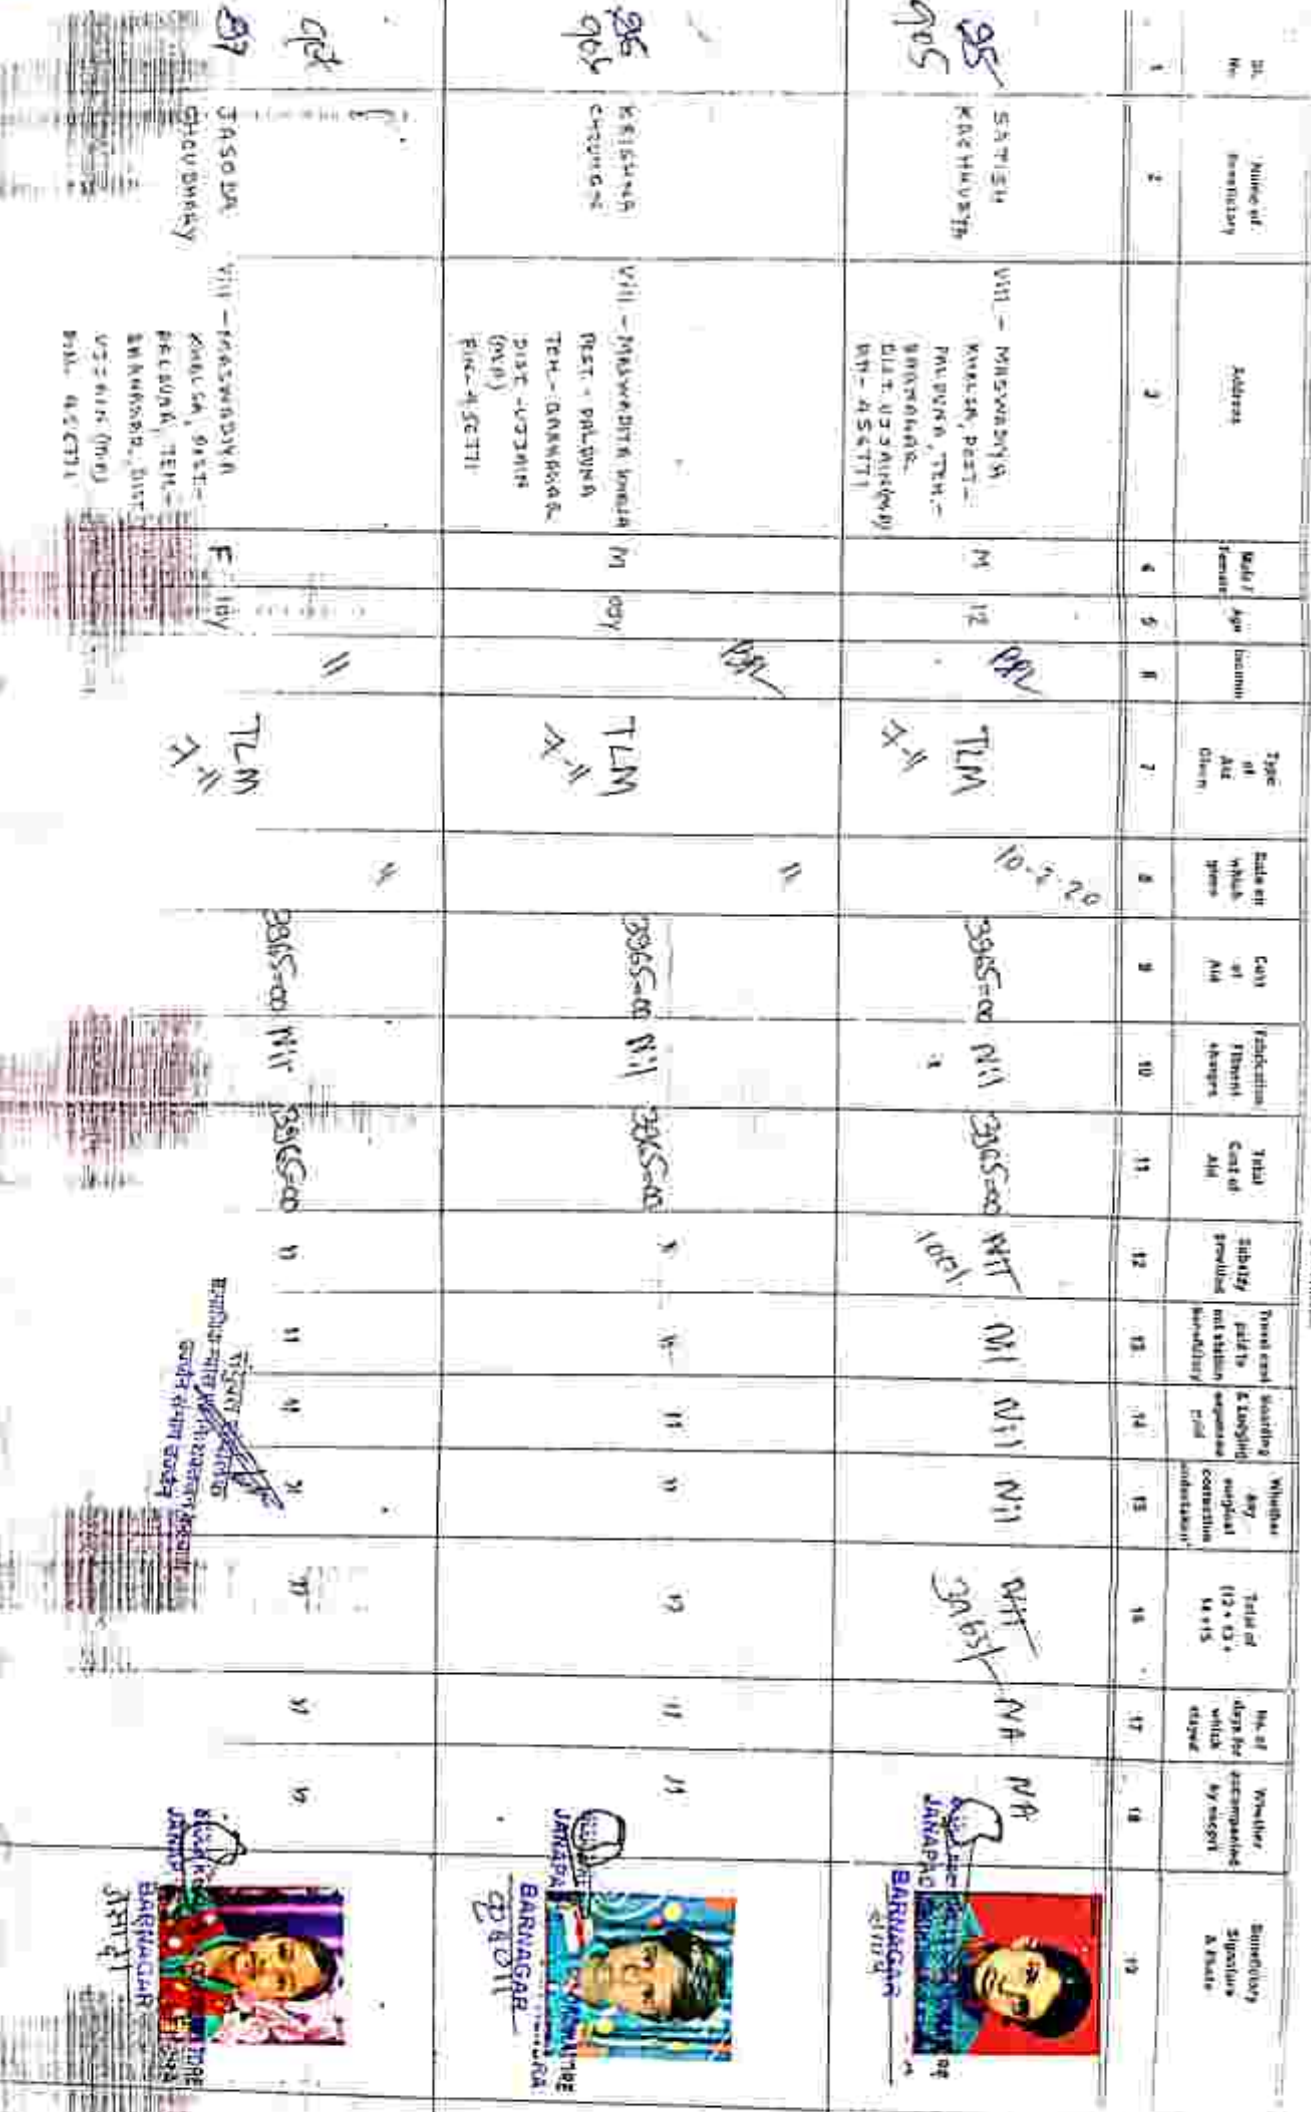 Sl. No.
Name of Beneficiary
Address
Male / Female
Age
Income
Type of Aid Given
Date on which given
Cost of Aid
Fabrication/ Fitment charges
Total Cost of Aid
Subsidy provided
Travel cost paid to out station Beneficiary
Boarding & Lodging expenses paid
Whether any surgical correction undertaken
Total of (12 + 13 + 14 + 15
No. of days for which stayed
Whether accompanied by escort
Beneficiary Signature & Photo
1 2 3 4 5 6 7 8 9 10 11 12 13 14 15 16 17 18 19
25
905
SATISH
Vill - MASWADIYA
KHALSA, POST-
PALDUNA, TEH.-
BARNAGAR
DIST. UJJAIN(MP)
PIN- 456771
M
12
BPL
TLM
7-11
10-2-20
3965=00
Nil
3965=00
100%
Nil
Nil
Nil
3965/
NA
NA
BARNAGAR
906
KRISHNA
CHOUHAN
Vill - MASWADIYA KHALSA
POST - PALDUNA
TEH- BARNAGAR
DIST - UJJAIN
(M.P)
PIN- 456771
M
09Y
BPL
TLM
7-11
"
3965=00
Nil
3965=00
" " " " " " "
BARNAGAR
कृष्णा
907
JASODA
CHOUDHARY
Vill - MASWADIYA
KHALSA, POST-
PALDUNA, TEH.-
BARNAGAR, DIST.
UJJAIN (MP)
PIN- 456771
F
10Y
"
TLM
7-11
"
3965=00
Nil
3965=00
" " " " " " "
BARNAGAR